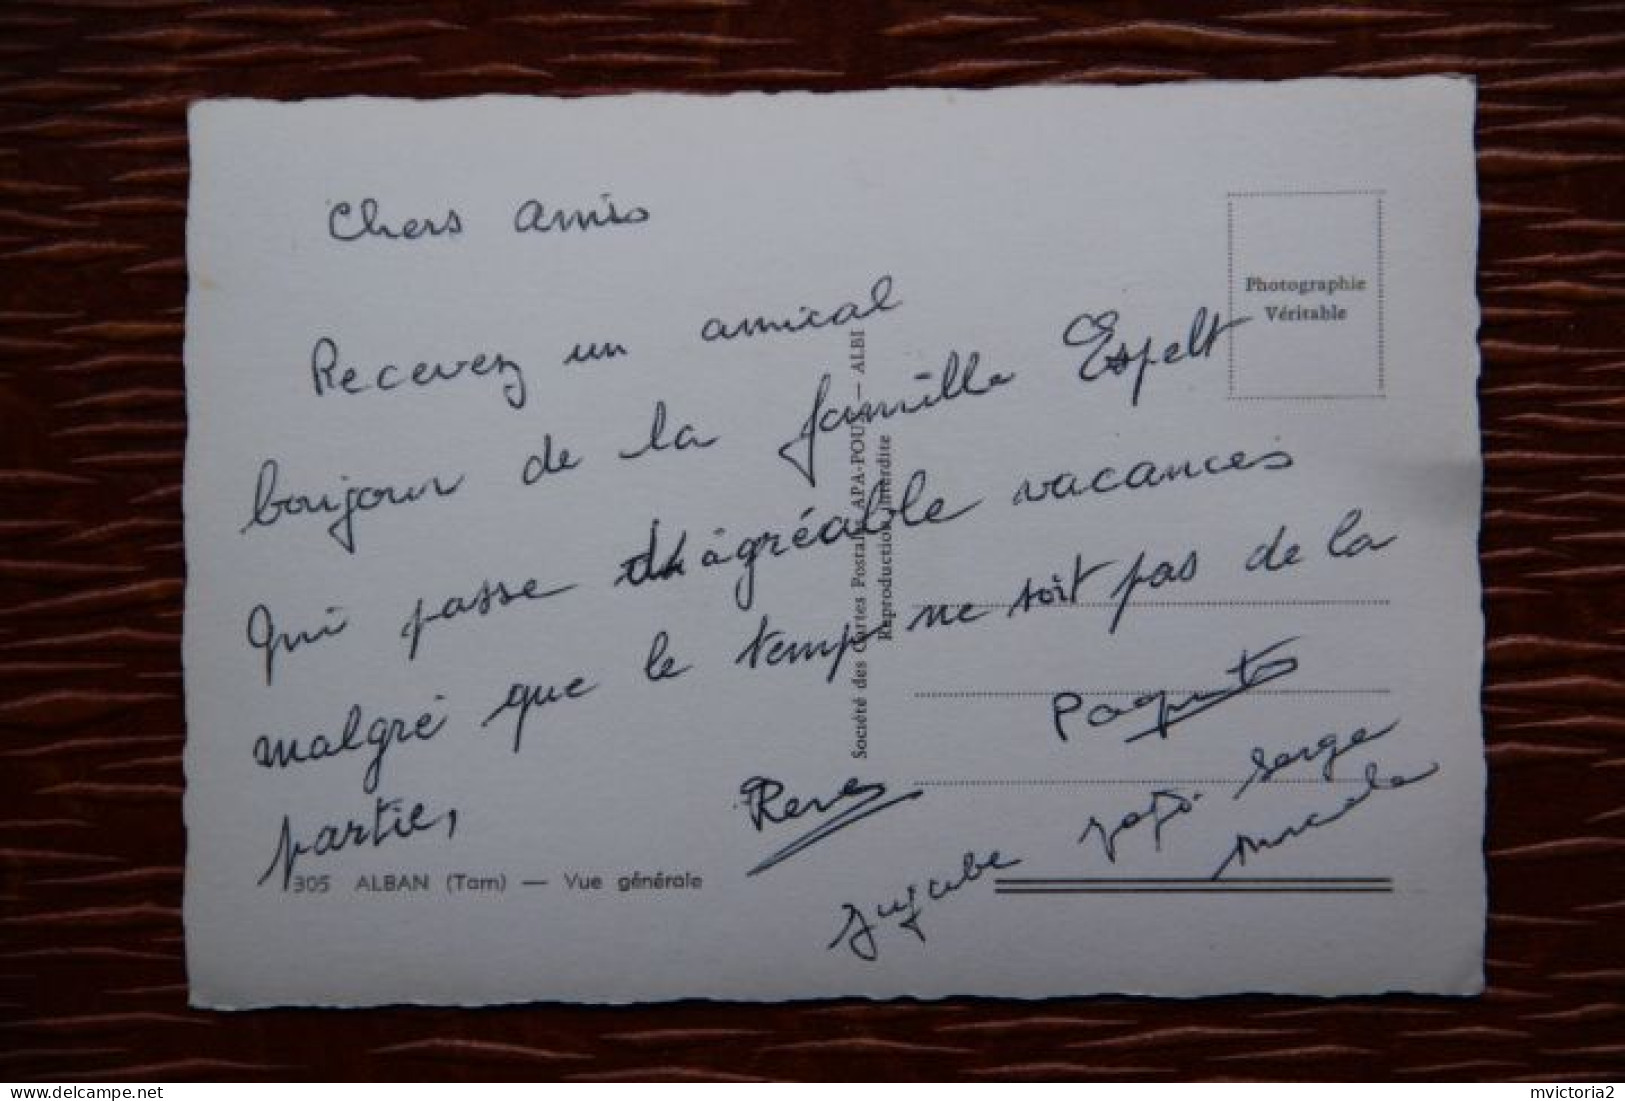 Chers amis
Recevez un amical
boujour de la famille Espelt
Qui passe d'agréable vacances
malgré que le temps ne soit pas de la
partie,
Photographie
Véritable
Société des Cartes Postales APA-POUX — ALBI
Reproduction interdite
Serge
305 ALBAN (Tarn) — Vue générale
delcampe.net
mvictoria2